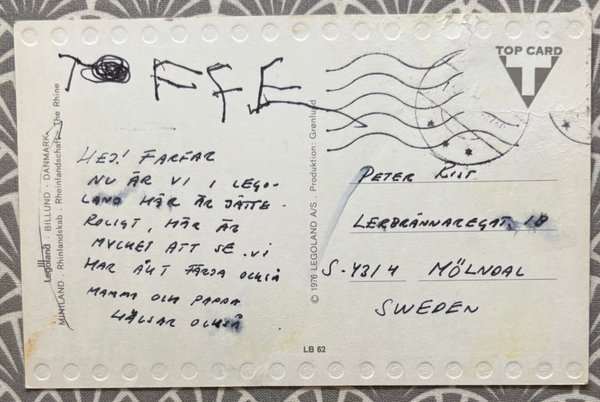 TOFFE
HEJ! FARFAR
NU ÄR VI I LEGO-
LAND HÄR ÄR JÄTTE-
ROLIGT, HÄR ÄR
MYCKET ATT SE. VI
HAR ÅKT FÄRJA OCKSÅ
MAMMA OCH PAPPA
HÄLSAR OCKSÅ
Legoland · BILLUND · DANMARK
MINILAND · Rhinlandskab · Rheinlandschaft · The Rhine
© 1976 LEGOLAND A/S · Produktion: Grønlund
LB 62
TOP CARD
T
PETER
LERBRÄNNAREGAT. 1B
S-431 4 MÖLNDAL
SWEDEN